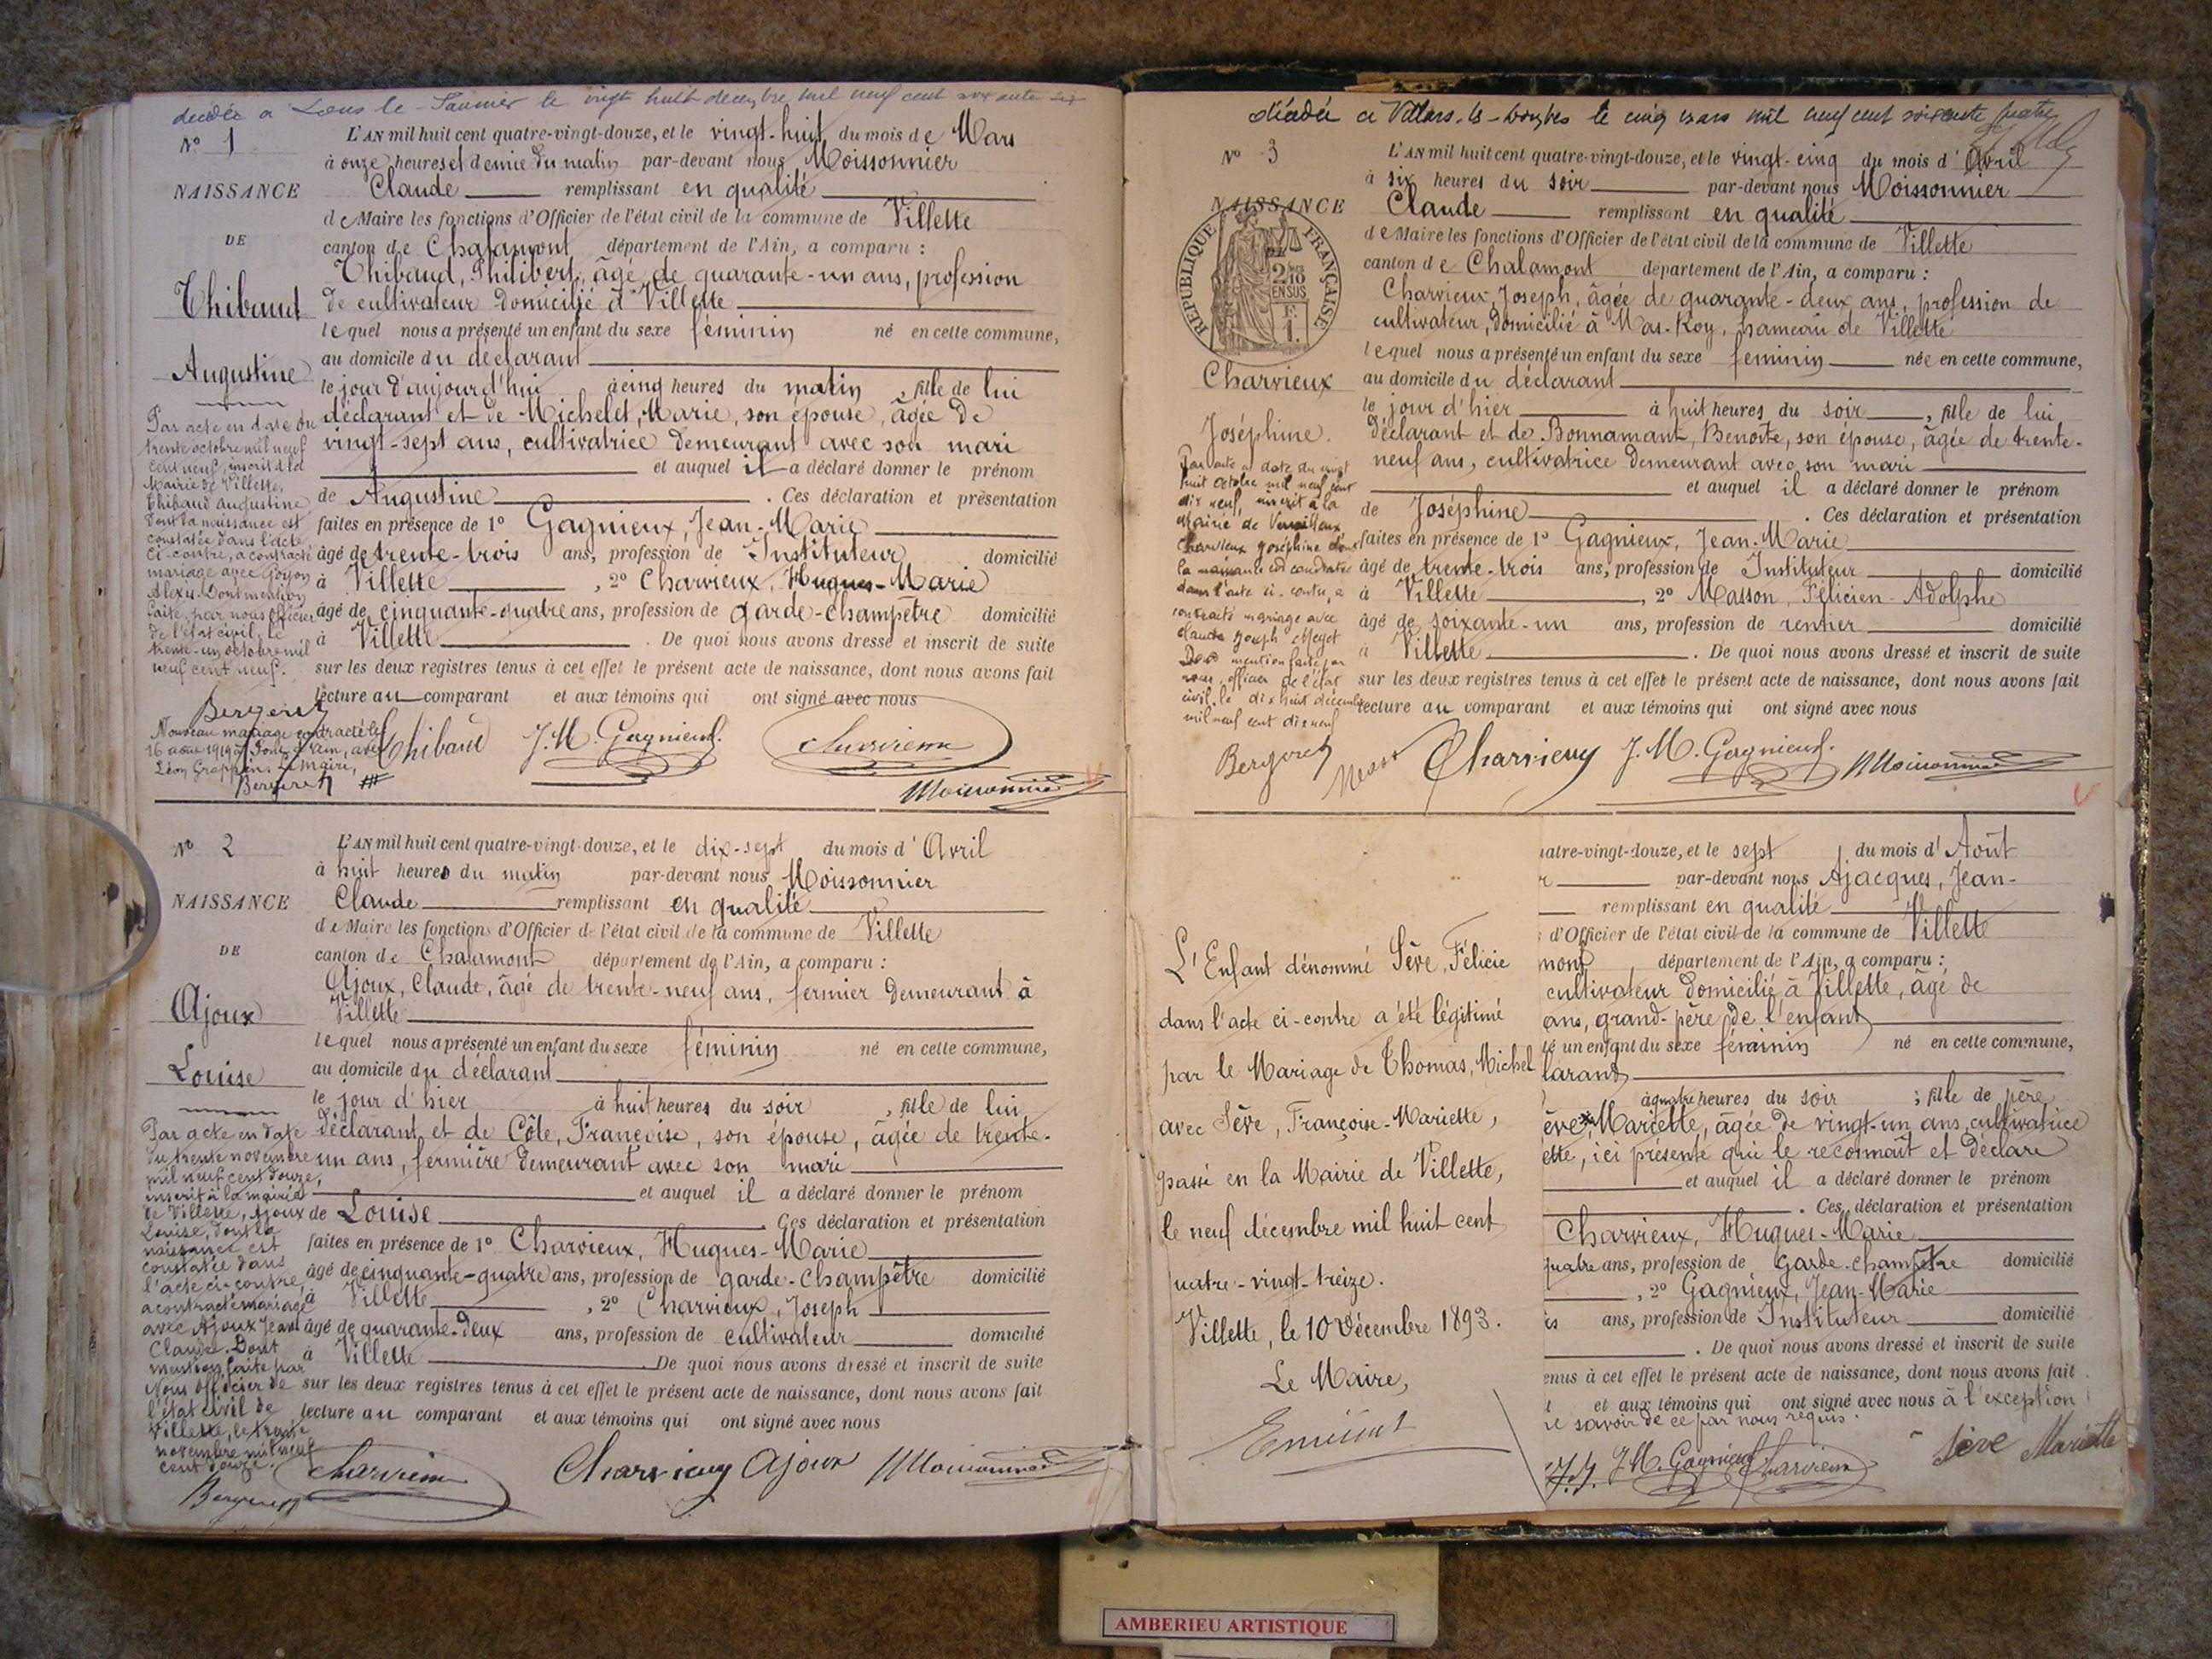 décédée à Lons le-Saunier le vingt huit décembre mil neuf cent soixante six
N° 1
NAISSANCE
DE
Thibaud
Augustine
L'AN mil huit cent quatre-vingt-douze, et le vingt-huit du mois de Mars
à onze heures et demie du matin par-devant nous Moissonnier
Claude remplissant en qualité
de Maire les fonctions d'Officier de l'état civil de la commune de Villette
canton de Chalamont département de l'Ain, a comparu :
Thibaud, Philibert, âgé de quarante-un ans, profession
de cultivateur domicilié à Villette
lequel nous a présenté un enfant du sexe féminin né en cette commune,
au domicile du déclarant
le jour d'aujourd'hui à cinq heures du matin, fille de lui
déclarant et de Michelet, Marie, son épouse, âgée de
vingt-sept ans, cultivatrice demeurant avec son mari
et auquel il a déclaré donner le prénom
de Augustine. Ces déclaration et présentation
faites en présence de 1° Gagnieux, Jean-Marie
âgé de trente-trois ans, profession de Instituteur domicilié
à Villette, 2° Charvieux, Hugues-Marie
âgé de cinquante-quatre ans, profession de garde-champêtre domicilié
à Villette. De quoi nous avons dressé et inscrit de suite
sur les deux registres tenus à cet effet le présent acte de naissance, dont nous avons fait
lecture au comparant et aux témoins qui ont signé avec nous
Par acte en date du
trente octobre mil neuf
cent neuf, inscrit à la
Mairie de Villette,
Thibaud Augustine
dont la naissance est
constatée dans l'acte
ci-contre, a contracté
mariage avec Goyon
Alexis. Dont mention
faite par nous Officier
de l'état civil, le
trente-un octobre mil
neuf cent neuf.
Bergeret
Nouveau mariage contracté le
16 août 1919 à Pont d'Ain, avec
Léon Grappin. Le Maire,
Bergeret
Thibaud J.M. Gagnieux. Charvieux
Moissonnier
N° 2
NAISSANCE
DE
Ajoux
Louise
L'AN mil huit cent quatre-vingt-douze, et le dix-sept du mois d'Avril
à huit heures du matin par-devant nous Moissonnier
Claude remplissant en qualité
de Maire les fonctions d'Officier de l'état civil de la commune de Villette
canton de Chalamont département de l'Ain, a comparu :
Ajoux, Claude, âgé de trente-neuf ans, fermier demeurant à
Villette
lequel nous a présenté un enfant du sexe féminin né en cette commune,
au domicile du déclarant
le jour d'hier à huit heures du soir, fille de lui
déclarant et de Côte, Françoise, son épouse, âgée de trente-
un ans, fermière demeurant avec son mari
et auquel il a déclaré donner le prénom
de Louise. Ces déclaration et présentation
faites en présence de 1° Charvieux, Hugues-Marie
âgé de cinquante-quatre ans, profession de garde-champêtre domicilié
à Villette, 2° Charvieux, Joseph
âgé de quarante-deux ans, profession de cultivateur domicilié
à Villette. De quoi nous avons dressé et inscrit de suite
sur les deux registres tenus à cet effet le présent acte de naissance, dont nous avons fait
lecture au comparant et aux témoins qui ont signé avec nous
Par acte en date
du trente novembre
mil neuf cent douze,
inscrit à la mairie
de Villette, Ajoux
Louise, dont la
naissance est
constatée dans
l'acte ci-contre,
a contracté mariage
avec Ajoux Jean
Claude. Dont
mention faite par
Nous Officier de
l'état civil de
Villette, le trente
novembre mil neuf
cent douze.
Bergeret
Charvieux Charvieux Ajoux Moissonnier
décédée à Villars-les-Dombes le cinq mars mil neuf cent soixante quatre
N° 3
NAISSANCE
RÉPUBLIQUE FRANÇAISE
2/10
EN SUS
1 F.
Charvieux
Joséphine.
L'AN mil huit cent quatre-vingt-douze, et le vingt-cinq du mois d'Avril
à six heures du soir par-devant nous Moissonnier
Claude remplissant en qualité
de Maire les fonctions d'Officier de l'état civil de la commune de Villette
canton de Chalamont département de l'Ain, a comparu :
Charvieux, Joseph, âgée de quarante-deux ans, profession de
cultivateur, domicilié à Mas-Roy, hameau de Villette
lequel nous a présenté un enfant du sexe féminin née en cette commune,
au domicile du déclarant
le jour d'hier à huit heures du soir, fille de lui
déclarant et de Bonnamant, Benoîte, son épouse, âgée de trente-
neuf ans, cultivatrice demeurant avec son mari
et auquel il a déclaré donner le prénom
de Joséphine. Ces déclaration et présentation
faites en présence de 1° Gagnieux, Jean-Marie
âgé de trente-trois ans, profession de Instituteur domicilié
à Villette, 2° Masson, Félicien-Adolphe
âgé de soixante-un ans, profession de rentier domicilié
à Villette. De quoi nous avons dressé et inscrit de suite
sur les deux registres tenus à cet effet le présent acte de naissance, dont nous avons fait
lecture au comparant et aux témoins qui ont signé avec nous
Par acte en date du vingt
huit Octobre mil neuf cent
dix neuf, inscrit à la
Mairie de Versailleux
Charvieux Joséphine dont
la naissance est constatée
dans l'acte ci-contre, a
contracté mariage avec
Claude Joseph
Dont mention faite par
nous, officier de l'état
civil, le dix huit décembre
mil neuf cent dix neuf
Bergeret Charvieux J.M. Gagnieux. Moissonnier
L'Enfant dénommé Sève, Félicie
dans l'acte ci-contre a été légitimé
par le Mariage de Thomas, Michel
avec Sève, Françoise-Mariette,
passé en la Mairie de Villette,
le neuf décembre mil huit cent
quatre-vingt-treize.
Villette, le 10 Décembre 1893.
Le Maire,
uatre-vingt-douze, et le sept du mois d'Août
par-devant nous Ajacques, Jean-
remplissant en qualité
d'Officier de l'état civil de la commune de Villette
mont département de l'Ain, a comparu :
cultivateur domicilié à Villette, âgé de
ans, grand-père de l'enfant
té un enfant du sexe féminin né en cette commune,
larant
à quatre heures du soir ; fille de père
ève Mariette, âgée de vingt-un ans, cultivatrice
ette, ici présente qui le reconnaît et déclare
et auquel il a déclaré donner le prénom
. Ces déclaration et présentation
Charvieux, Hugues-Marie
quatre ans, profession de Garde-champêtre domicilié
, 2° Gagnieux, Jean-Marie
is ans, profession de Instituteur domicilié
. De quoi nous avons dressé et inscrit de suite
enus à cet effet le présent acte de naissance, dont nous avons fait
et aux témoins qui ont signé avec nous à l'exception
le savoir de ce par nous requis.
J.M. Gagnieux Charvieux Sève Mariette
AMBERIEU ARTISTIQUE